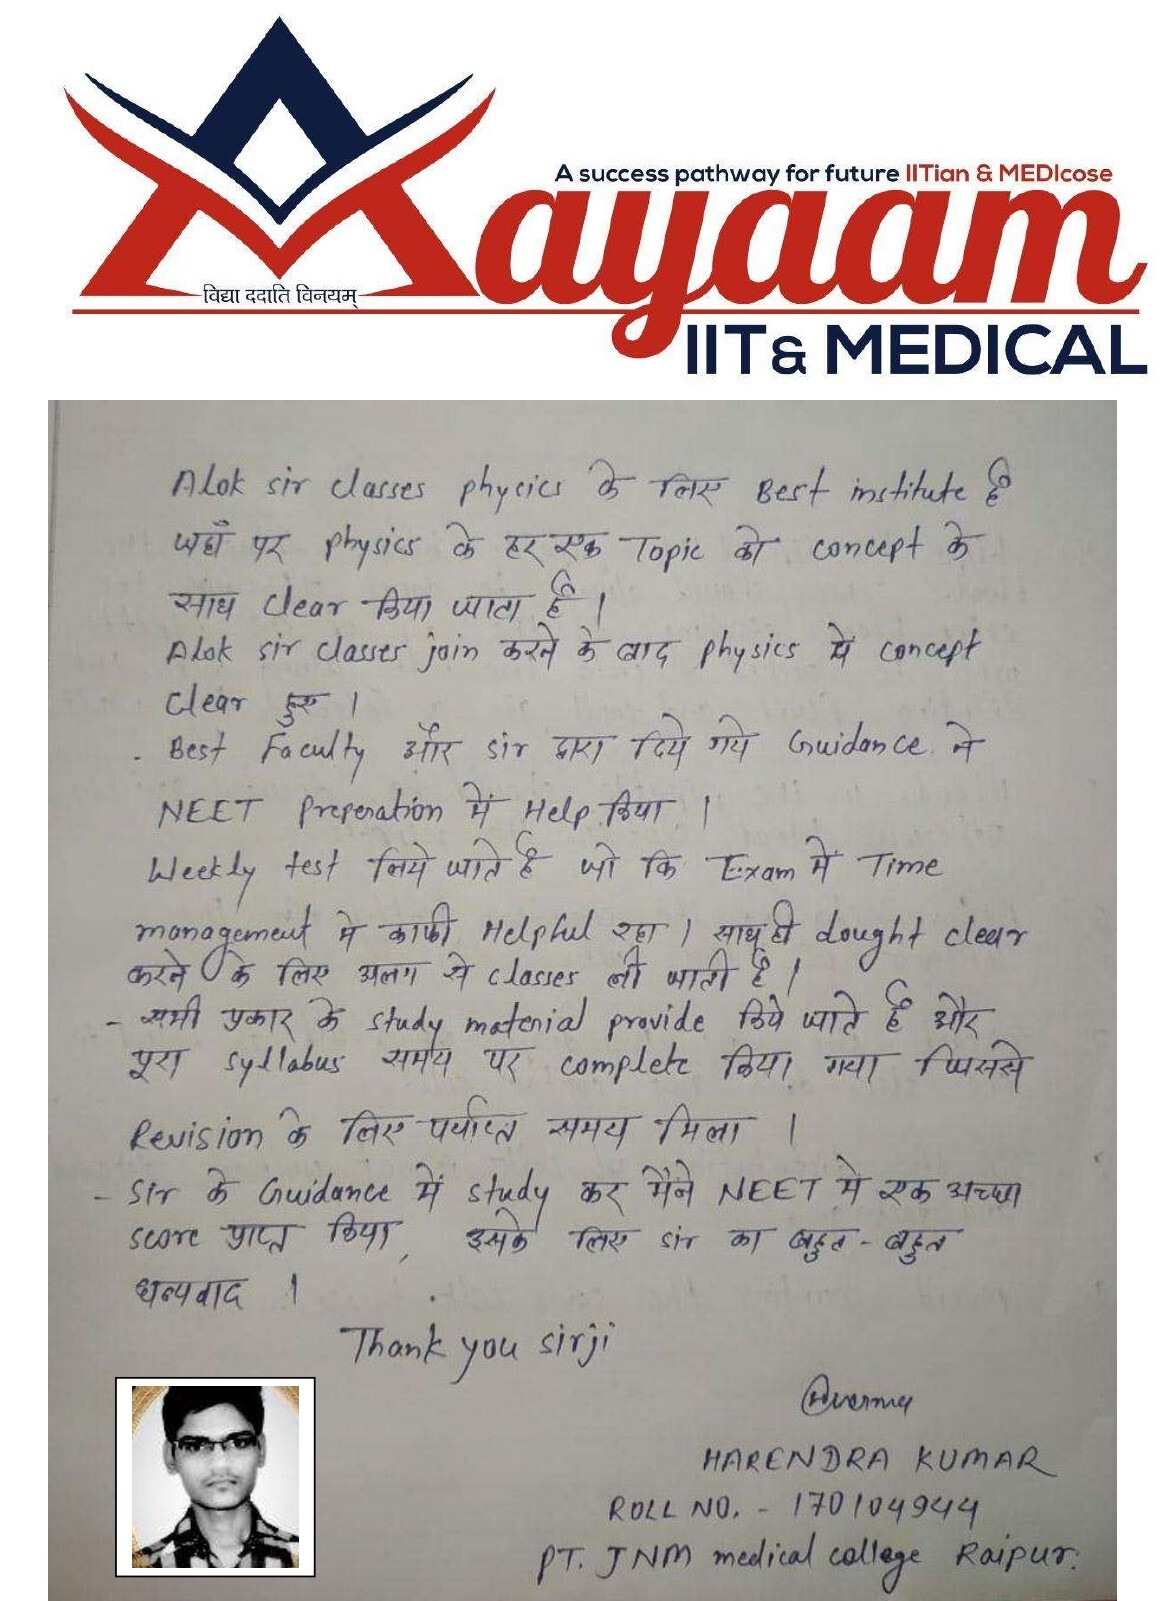 A success pathway for future IITian & MEDIcose
Mayaam
विद्या ददाति विनयम्
IIT & MEDICAL
Alok sir classes physics के लिए Best institute है
जहाँ पर physics के हर एक Topic को concept के
साथ clear किया जाता है।
Alok sir classes join करने के बाद physics मे concept
clear हुए।
. Best Faculty और sir द्वारा दिये गये Guidance ने
NEET Preperation में Help किया।
Weekly test लिये जाते है जो कि Exam में Time
management मे काफी Helpful रहा। साथ ही dought clear
करने के लिए अलग से classes ली जाती है।
- सभी प्रकार के study material provide किये जाते है और
पूरा syllabus समय पर complete किया गया जिससे
Revision के लिए पर्याप्त समय मिला।
- Sir के Guidance में study कर मैने NEET मे एक अच्छा
score प्राप्त किया, इसके लिए sir का बहुत-बहुत
धन्यवाद।
Thank you sirji
HARENDRA KUMAR
ROLL NO. - 170104944
PT. JNM medical college Raipur.